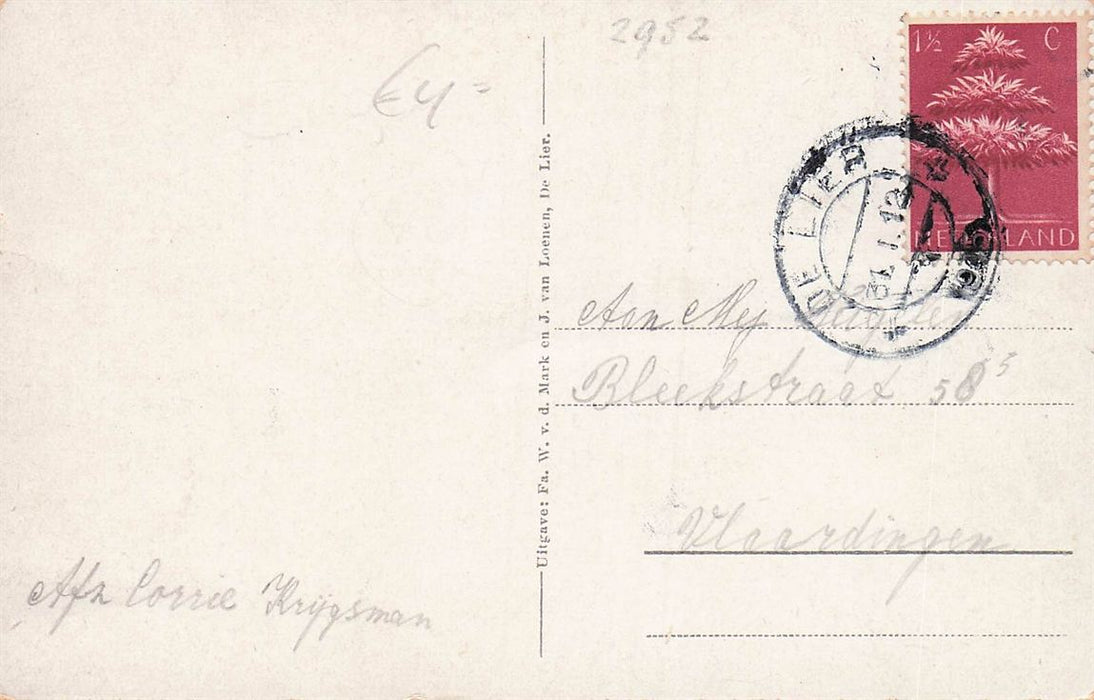 2952
€4=
1½ C
NEDERLAND
DE LIER
31.1.12
1945
Uitgave: Fa. W. v. d. Mark en J. van Loenen, De Lier.
Aan Mej
Bleekstraat 58
Vlaardingen
Afz Corrie Krijgsman